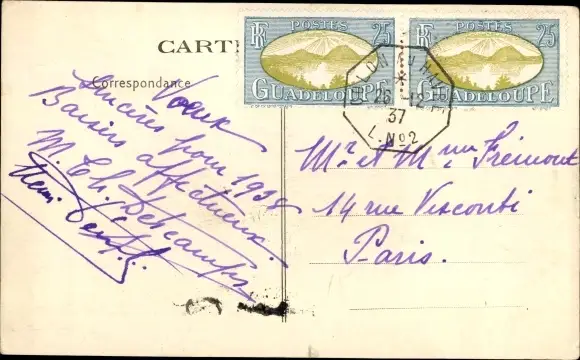 CARTE
Correspondance
RF POSTES 25
GUADELOUPE
RF POSTES 25
GUADELOUPE
26 -12
37
L. No 2
Voeux
sincères pour 1938
Baisers affectueux.
M. Ch. Descamps
Mr. et Mme Frémont
14 rue Visconti
Paris.